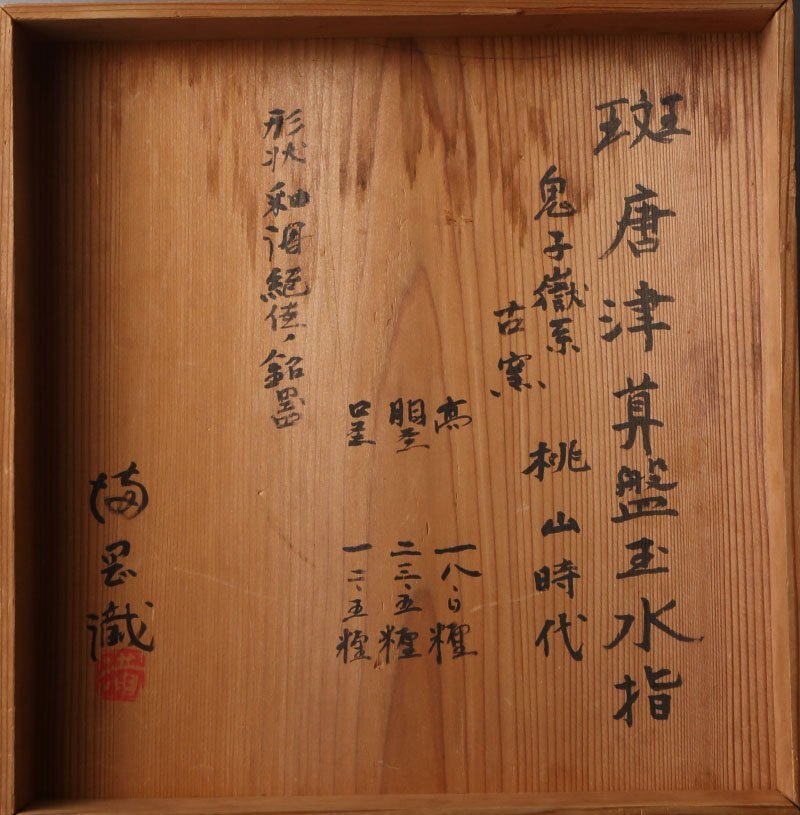 斑唐津算盤玉水指
鬼子嶽系
古窯
桃山時代
高 一八、〇糎
胴圣 二三、五糎
口圣 一二、五糎
形状釉調絶佳、銘器
満岡識